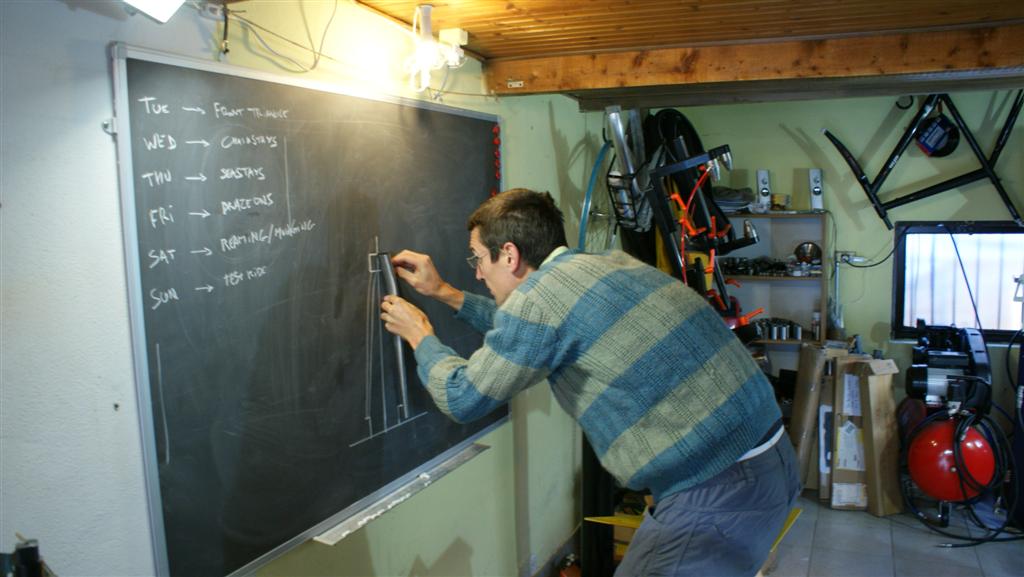 TUE → FRONT TRIANGLE
WED → CHAINSTAYS
THU → SEASTAYS
FRI → BRAZEONS
SAT → REAMING/MUNGING
SUN → TEST RIDE